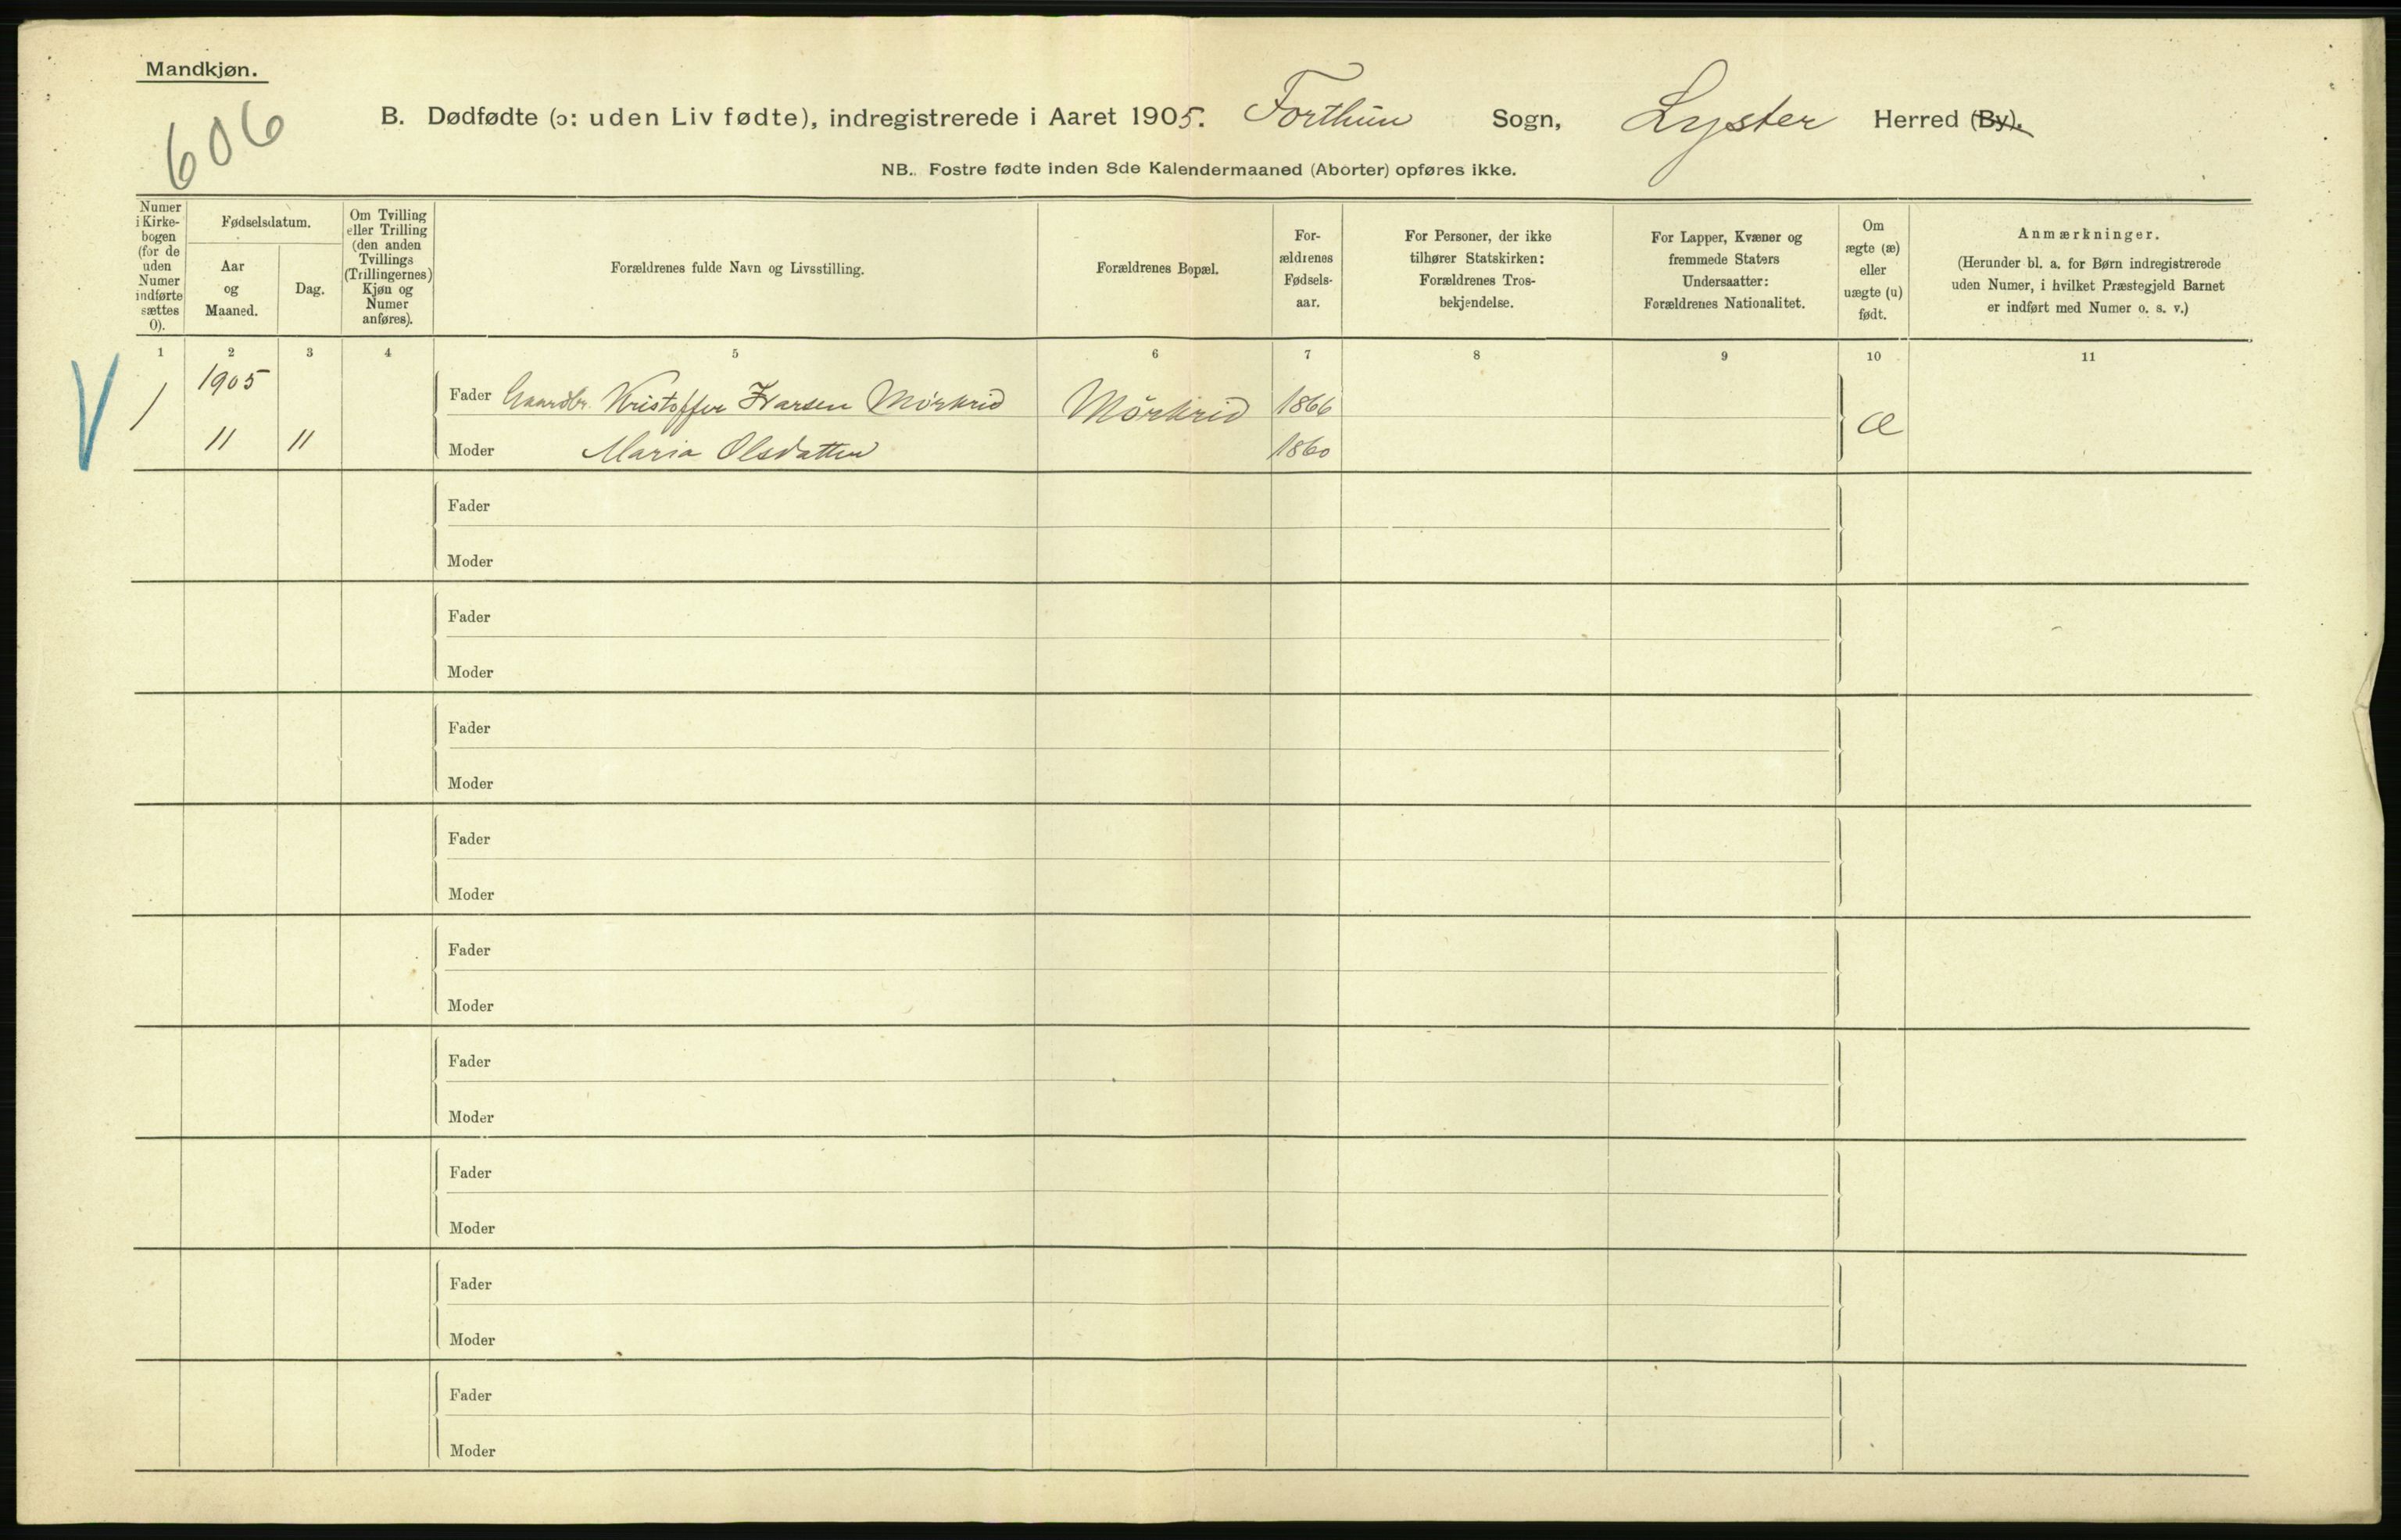 Mandkjøn.
606
B. Dødfødte (ɔ: uden Liv fødte), indregistrerede i Aaret 1905. Forthun Sogn, Lyster Herred (By).
NB. Fostre fødte inden 8de Kalendermaaned (Aborter) opføres ikke.
Numer
i Kirke-
bogen
(for de
uden
Numer
indførte
sættes
0).
Fødselsdatum.
Aar
og
Maaned.
Dag.
Om Tvilling
eller Trilling
(den anden
Tvillings
(Trillingernes)
Kjøn og
Numer
anføres).
Forældrenes fulde Navn og Livsstilling.
Forældrenes Bopæl.
For-
ældrenes
Fødsels-
aar.
For Personer, der ikke
tilhører Statskirken:
Forældrenes Tros-
bekjendelse.
For Lapper, Kvæner og
fremmede Staters
Undersaatter:
Forældrenes Nationalitet.
Om
ægte (æ)
eller
uægte (u)
født.
Anmærkninger.
(Herunder bl. a. for Børn indregistrerede
uden Numer, i hvilket Præstegjeld Barnet
er indført med Numer o. s. v.)
1 2 3 4 5 6 7 8 9 10 11
V
1 1905
Fader Gaardbr. Kristoffer Ivarsen Mörkrid Mörkrid 1866 æ
11 11 Moder Maria Olsdatter 1860
Fader
Moder
Fader
Moder
Fader
Moder
Fader
Moder
Fader
Moder
Fader
Moder
Fader
Moder
Fader
Moder
Fader
Moder